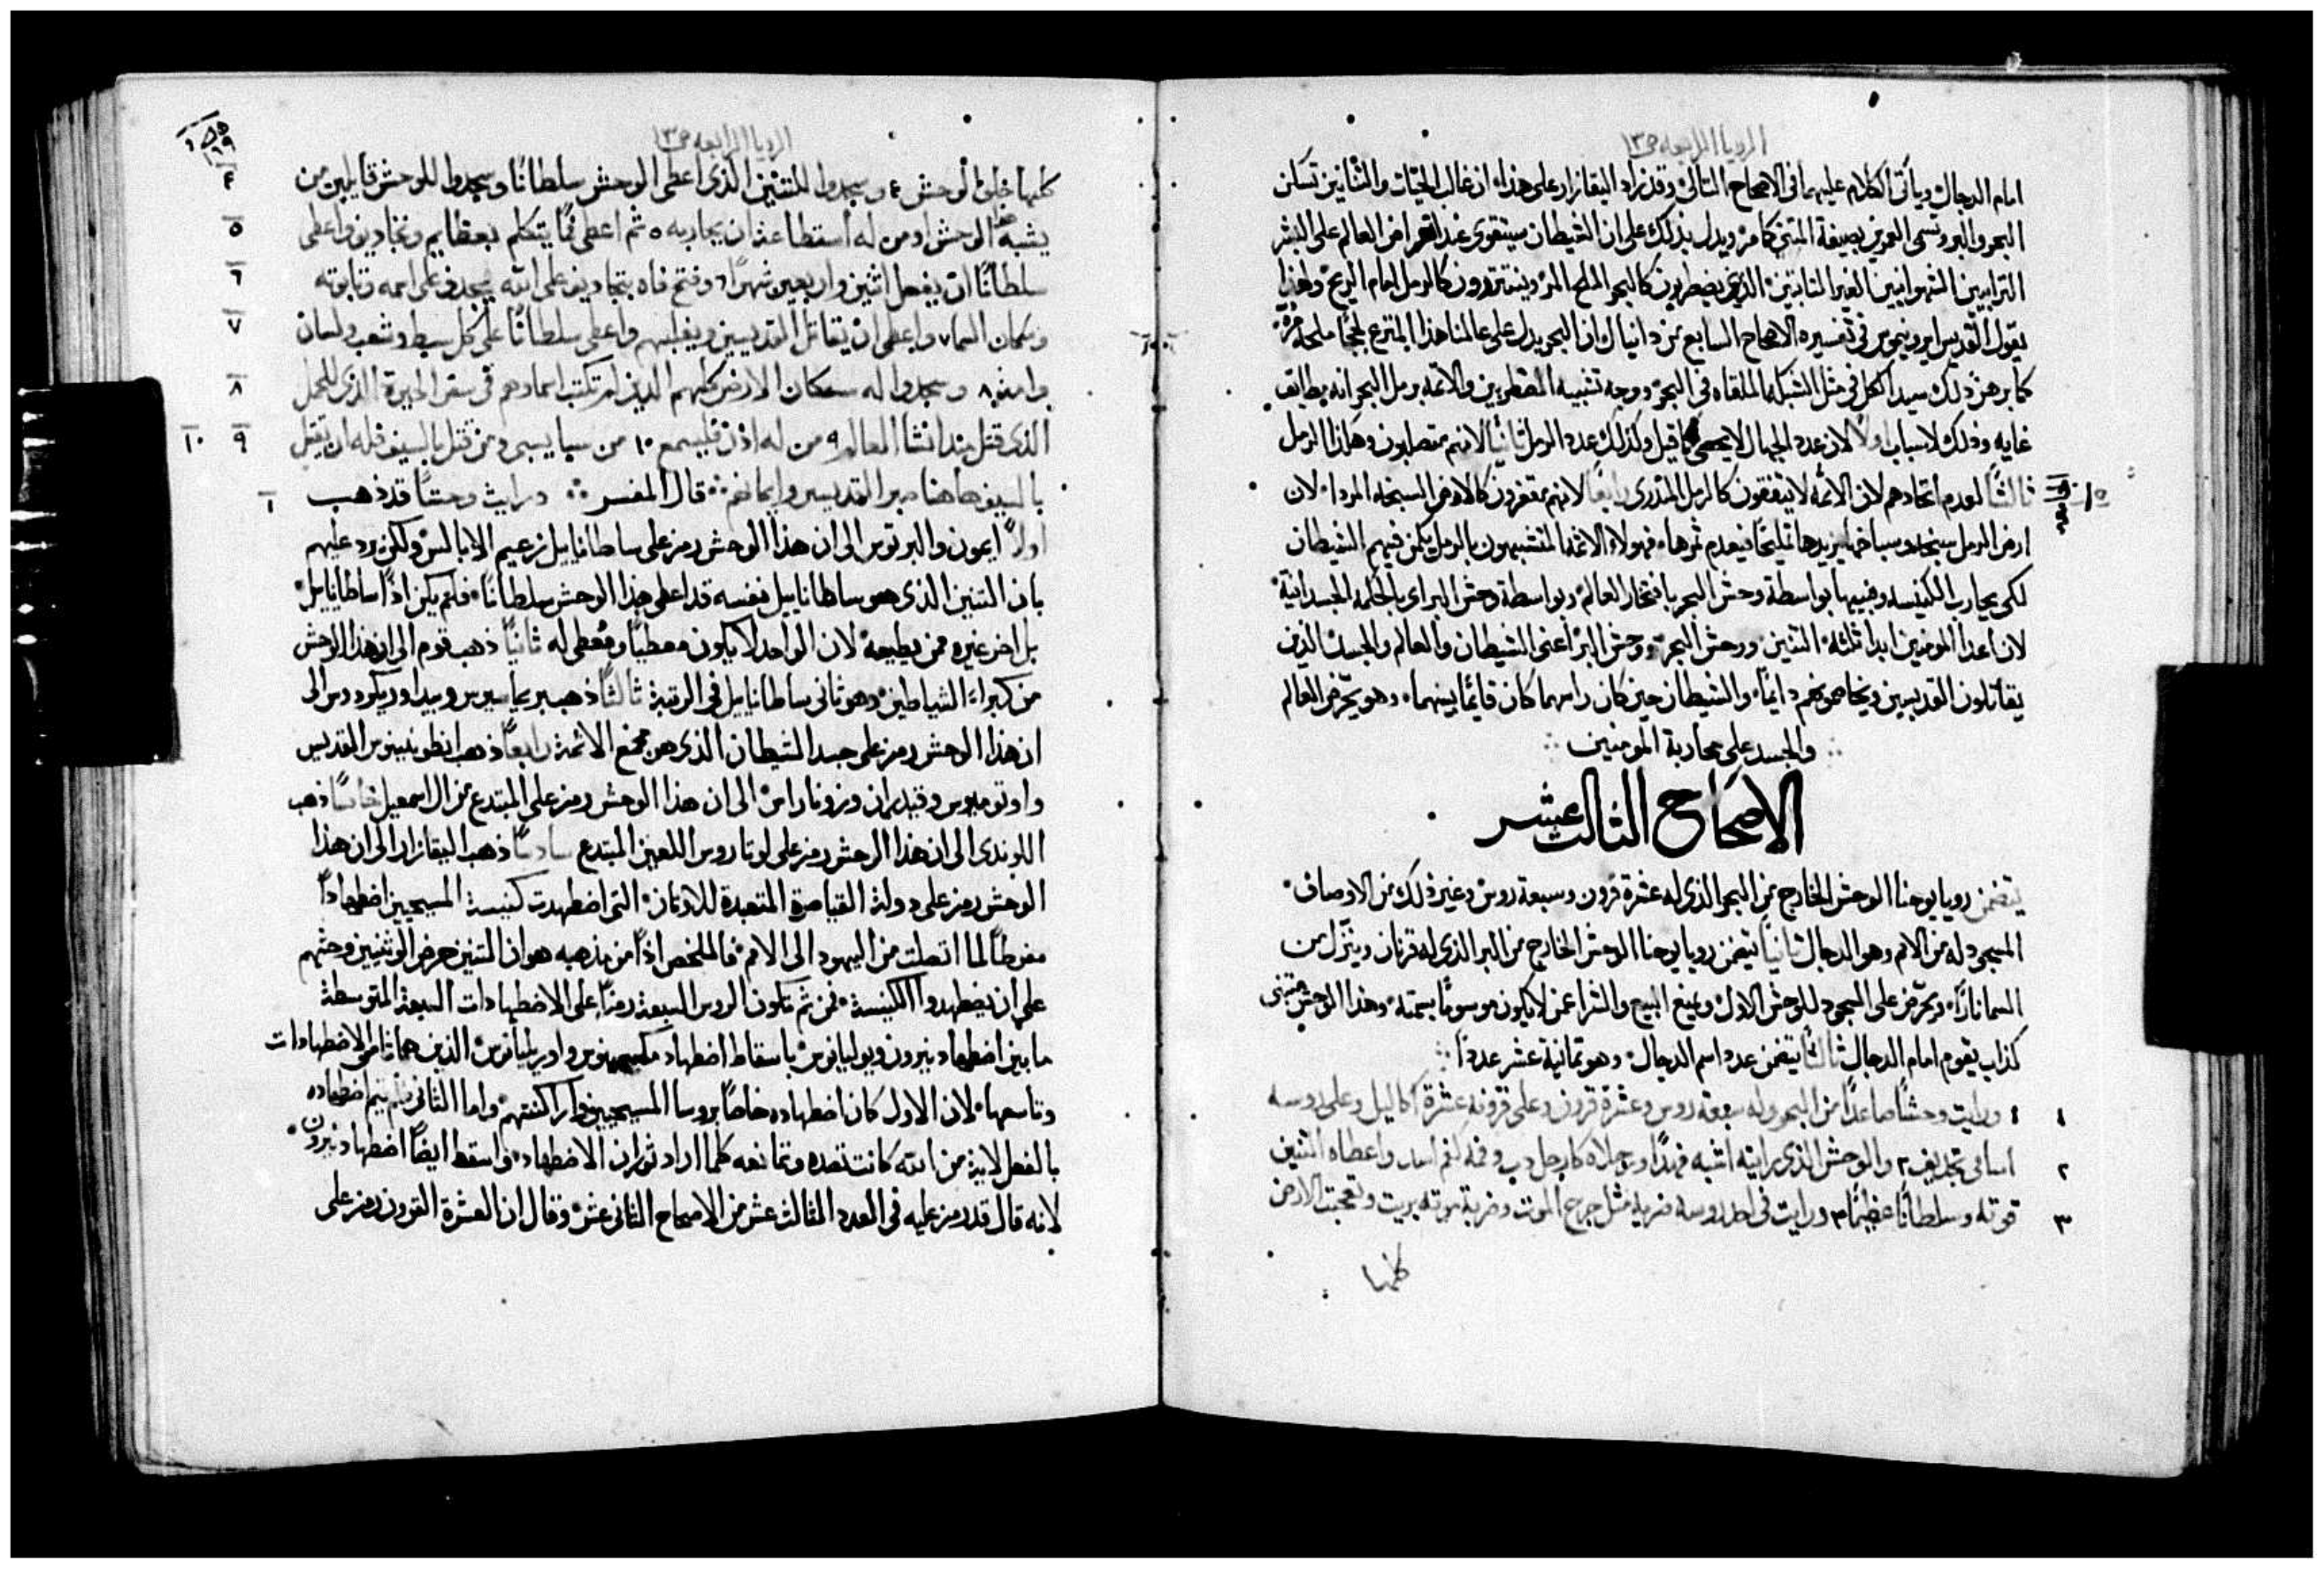 الرويا الرابعه ص١٣
امام الدجال وياتي الكلام عليهما في الاصحاح التالي وقد زاد البقازار على هذا ان غالب الحيات والتنانين تسكن
البحر والبر وتسمى العربن بصيغة التنين كامر ويدل بذلك على ان الشيطان سيتقوى عند انقراض العالم على البشر
الترابيين الشهوانيين الغير الثابتين الذين يضطربون كالبحر المالح المر ويتبذرون كالرمل امام الريح ولهذا
يقول القديس ايرونيموس في تفسيره الاصحاح السابع من دانيال ان البحر يدل على عالمنا هذا المترع لججًا ملحة مرة
كما برهن ذلك سيد الكل في مثل الشبكة الملقاه في البحر ووجه تشبيه المضطربين والائمه برمل البحر انه يطابق
غايه وذلك لاسباب اولًا لان عدد الجهال لا يحصى كما قيل وكذلك عدد الرمل ثانيًا لانهم متصلبون وهكذا الرمل
ثالثًا لعدم اتحادهم لان الائمه لا يتفقون كالرمل المذرى رابعًا لانهم مقفرون كالارض السبخه المرداء لان
ارض الرمل سبخه وسباخها يزيدها تمليحًا فيعدم ثمرها فهولاء الائمه المتشبهون بالرمل يكمن فيهم الشيطان
لكي يحارب الكنيسه وفيبها بواسطة وحش البحر بافتخار العالم وبواسطة وحش البر اي بالحكمه الجسدانية
لان اعدا المومنين ابدا ثلثة التنين ووحش البحر ووحش البر اعني الشيطان والعالم والجسد الذين
يقاتلون القديسين ويخاصمونهم دايمًا والشيطان حين كان راسهما كان قايمًا بينهما وهو يحرض العالم
والجسد على محاربة المومنين
الاصحاح الثالث عشر
يتضمن رويا يوحنا الوحش الخارج من البحر الذي له عشرة قرون وسبعة روس وغير ذلك من الاوصاف
المسجود له من الامم وهو الدجال ثانيًا يتضمن رويا يوحنا الوحش الخارج من البر الذي له قرنان وينزل من
السما نارًا ويحرض على السجود للوحش الاول ويمنع البيع والشرا عمن لا يكون موسومًا بسمته وهذا الوحش متنبى
كذاب يقوم امام الدجال ثالثًا يتضمن عدد اسم الدجال وهو ثمانية عشر عددًا
١ ورايت وحشًا صاعدًا من البحر وله سبعة روس وعشرة قرون وعلى قرونه عشرة اكاليل وعلى روسه
اسامي تجديف ٢ والوحش الذي رايته اشبه فهدًا ورجلاه كارجل دب وفمه كفم اسد واعطاه التنين
قوته وسلطانًا عظيمًا ٣ ورايت في احد روسه ضربة مثل جرح الموت وضربة موته بريت وتعجبت الارض
كلها
الرويا الرابعه ص١٣
كلها خلف الوحش ٤ وسجدوا للتنين الذي اعطى الوحش سلطانًا وسجدوا للوحش قايلين من
يشبه هذا الوحش او من له استطاعة ان يحاربه ٥ ثم اعطي فمًا يتكلم بعظايم وتجاديف واعطي
سلطانًا ان يفعل اثنين واربعين شهرًا ٦ وفتح فاه بتجاديف على الله ليجدف على اسمه وتابوته
وسكان السما ٧ واعطي ان يقاتل القديسين ويغلبهم واعطي سلطانًا على كل سبط وشعب ولسان
وامة ٨ وسجدوا له سكان الارض كلهم الذين لم تكتب اسماوهم في سفر الحيوة الذي للحمل
الذي قتل منذ انشا العالم ٩ من له اذن فليسمع ١٠ من سبا يسبى ومن قتل بالسيف فله ان يقتل
بالسيف هاهنا صبر القديسين وايمانهم قال المفسر ورايت وحشًا قد ذهب
اولًا ايمون والبرتوس الى ان هذا الوحش رمز على ساطانايل زعيم الابالس ولكن يرد عليهم
بان التنين الذي هو ساطاناييل نفسه قد اعطى هذا الوحش سلطانًا فلم يكن اذًا ساطانايل
بل اخر غيره ممن يطيعه لان الواحد لا يكون معطيًا ومُعطى له ثانيًا ذهب قوم الى ان هذا الوحش
من كبراء الشياطين وهو ثاني ساطانايل في الرتبة ثالثًا ذهب بريماسيوس وبيدا وريكردوس الى
ان هذا الوحش رمز على جسد الشيطان الذي هو مجمع الائمة رابعًا ذهب انطونينوس القديس
واوتوميوس وقيديران وزوناراس الى ان هذا الوحش رمز على المبتدع من ال اسمعيل خامسًا ذهب
اللوندي الى ان هذا الوحش رمز على لوتاروس اللعين المبتدع سادسًا ذهب البقازار الى ان هذا
الوحش رمز على دولة القياصرة المتعبدة للاوثان التي اضطهدت كنيسة المسيحيين اضطهادًا
مفرطًا لما اتصلت من اليهود الى الامم فالملخص اذًا من مذهبه هو ان التنين حرض الوثنيين وحثهم
على ان يضطهدوا الكنيسة فمن ثم تكون الروس السبعة رمزًا على الاضطهادات السبعة المتوسطة
ما بين اضطهاد نيرون ويوليانوس باسقاط اضطهاد مكسيمينوس واوريليانوس الذين هما ثامن الاضطهادات
وتاسعها لان الاول كان اضطهاده خاصًا بروسا المسيحيين واراكنتهم واما الثاني فلم يتم اضطهاده
بالفعل لاية من الله كانت تصده وتمانعه كلما اراد ثوران الاضطهاد واسقط ايضًا اضطهاد نيرون
لانه قال قد رمز عليه في العدد الثالث عشر من الاصحاح الثاني عشر وقال ان العشرة القرون رمز على